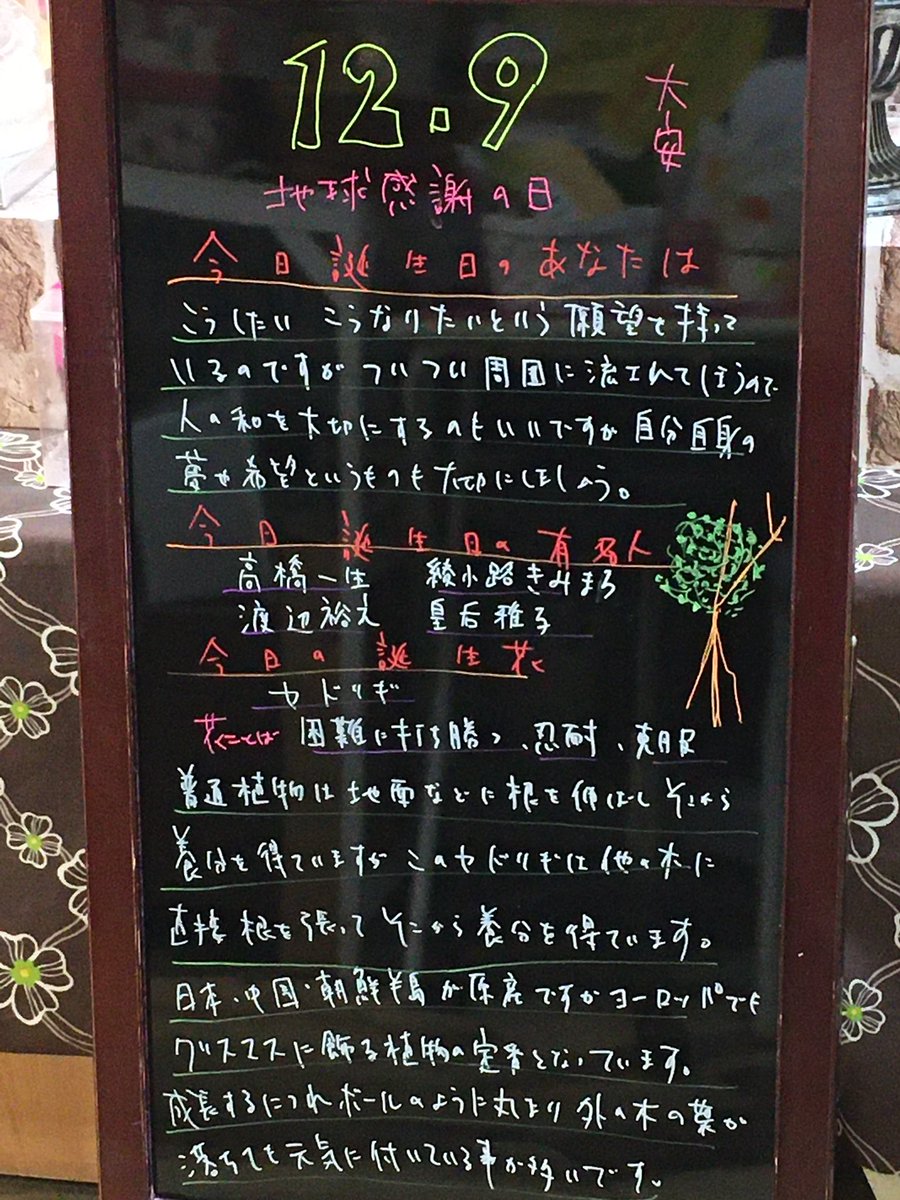 12.9
大安
地球感謝の日
今日誕生日のあなたは
こうしたい こうなりたいという願望を持って
いるのですが ついつい周囲に流されてしまうので
人の和を大切にするのもいいですが 自分自身の
夢や希望というものも大切にしましょう。
今日誕生日の有名人
高橋一生 綾小路きみまろ
渡辺裕之 皇后雅子
今日の誕生花
ヤドリギ
花ことば 困難に打ち勝つ、忍耐、克服
普通植物は地面などに根を伸ばし そこから
養分を得ていますが このヤドリギは他の木に
直接根を張って そこから養分を得ています。
日本・中国・朝鮮半島が原産ですが ヨーロッパでも
クリスマスに飾る植物の定番となっています。
成長するにつれボールのように丸まり 外の木の葉が
落ちても元気に付いている事が多いです。